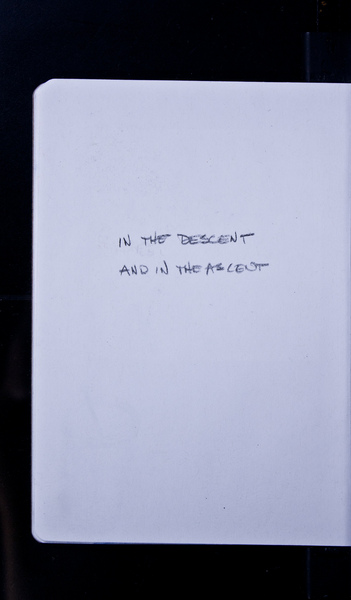 IN THE DESCENT
AND IN THE ASCENT